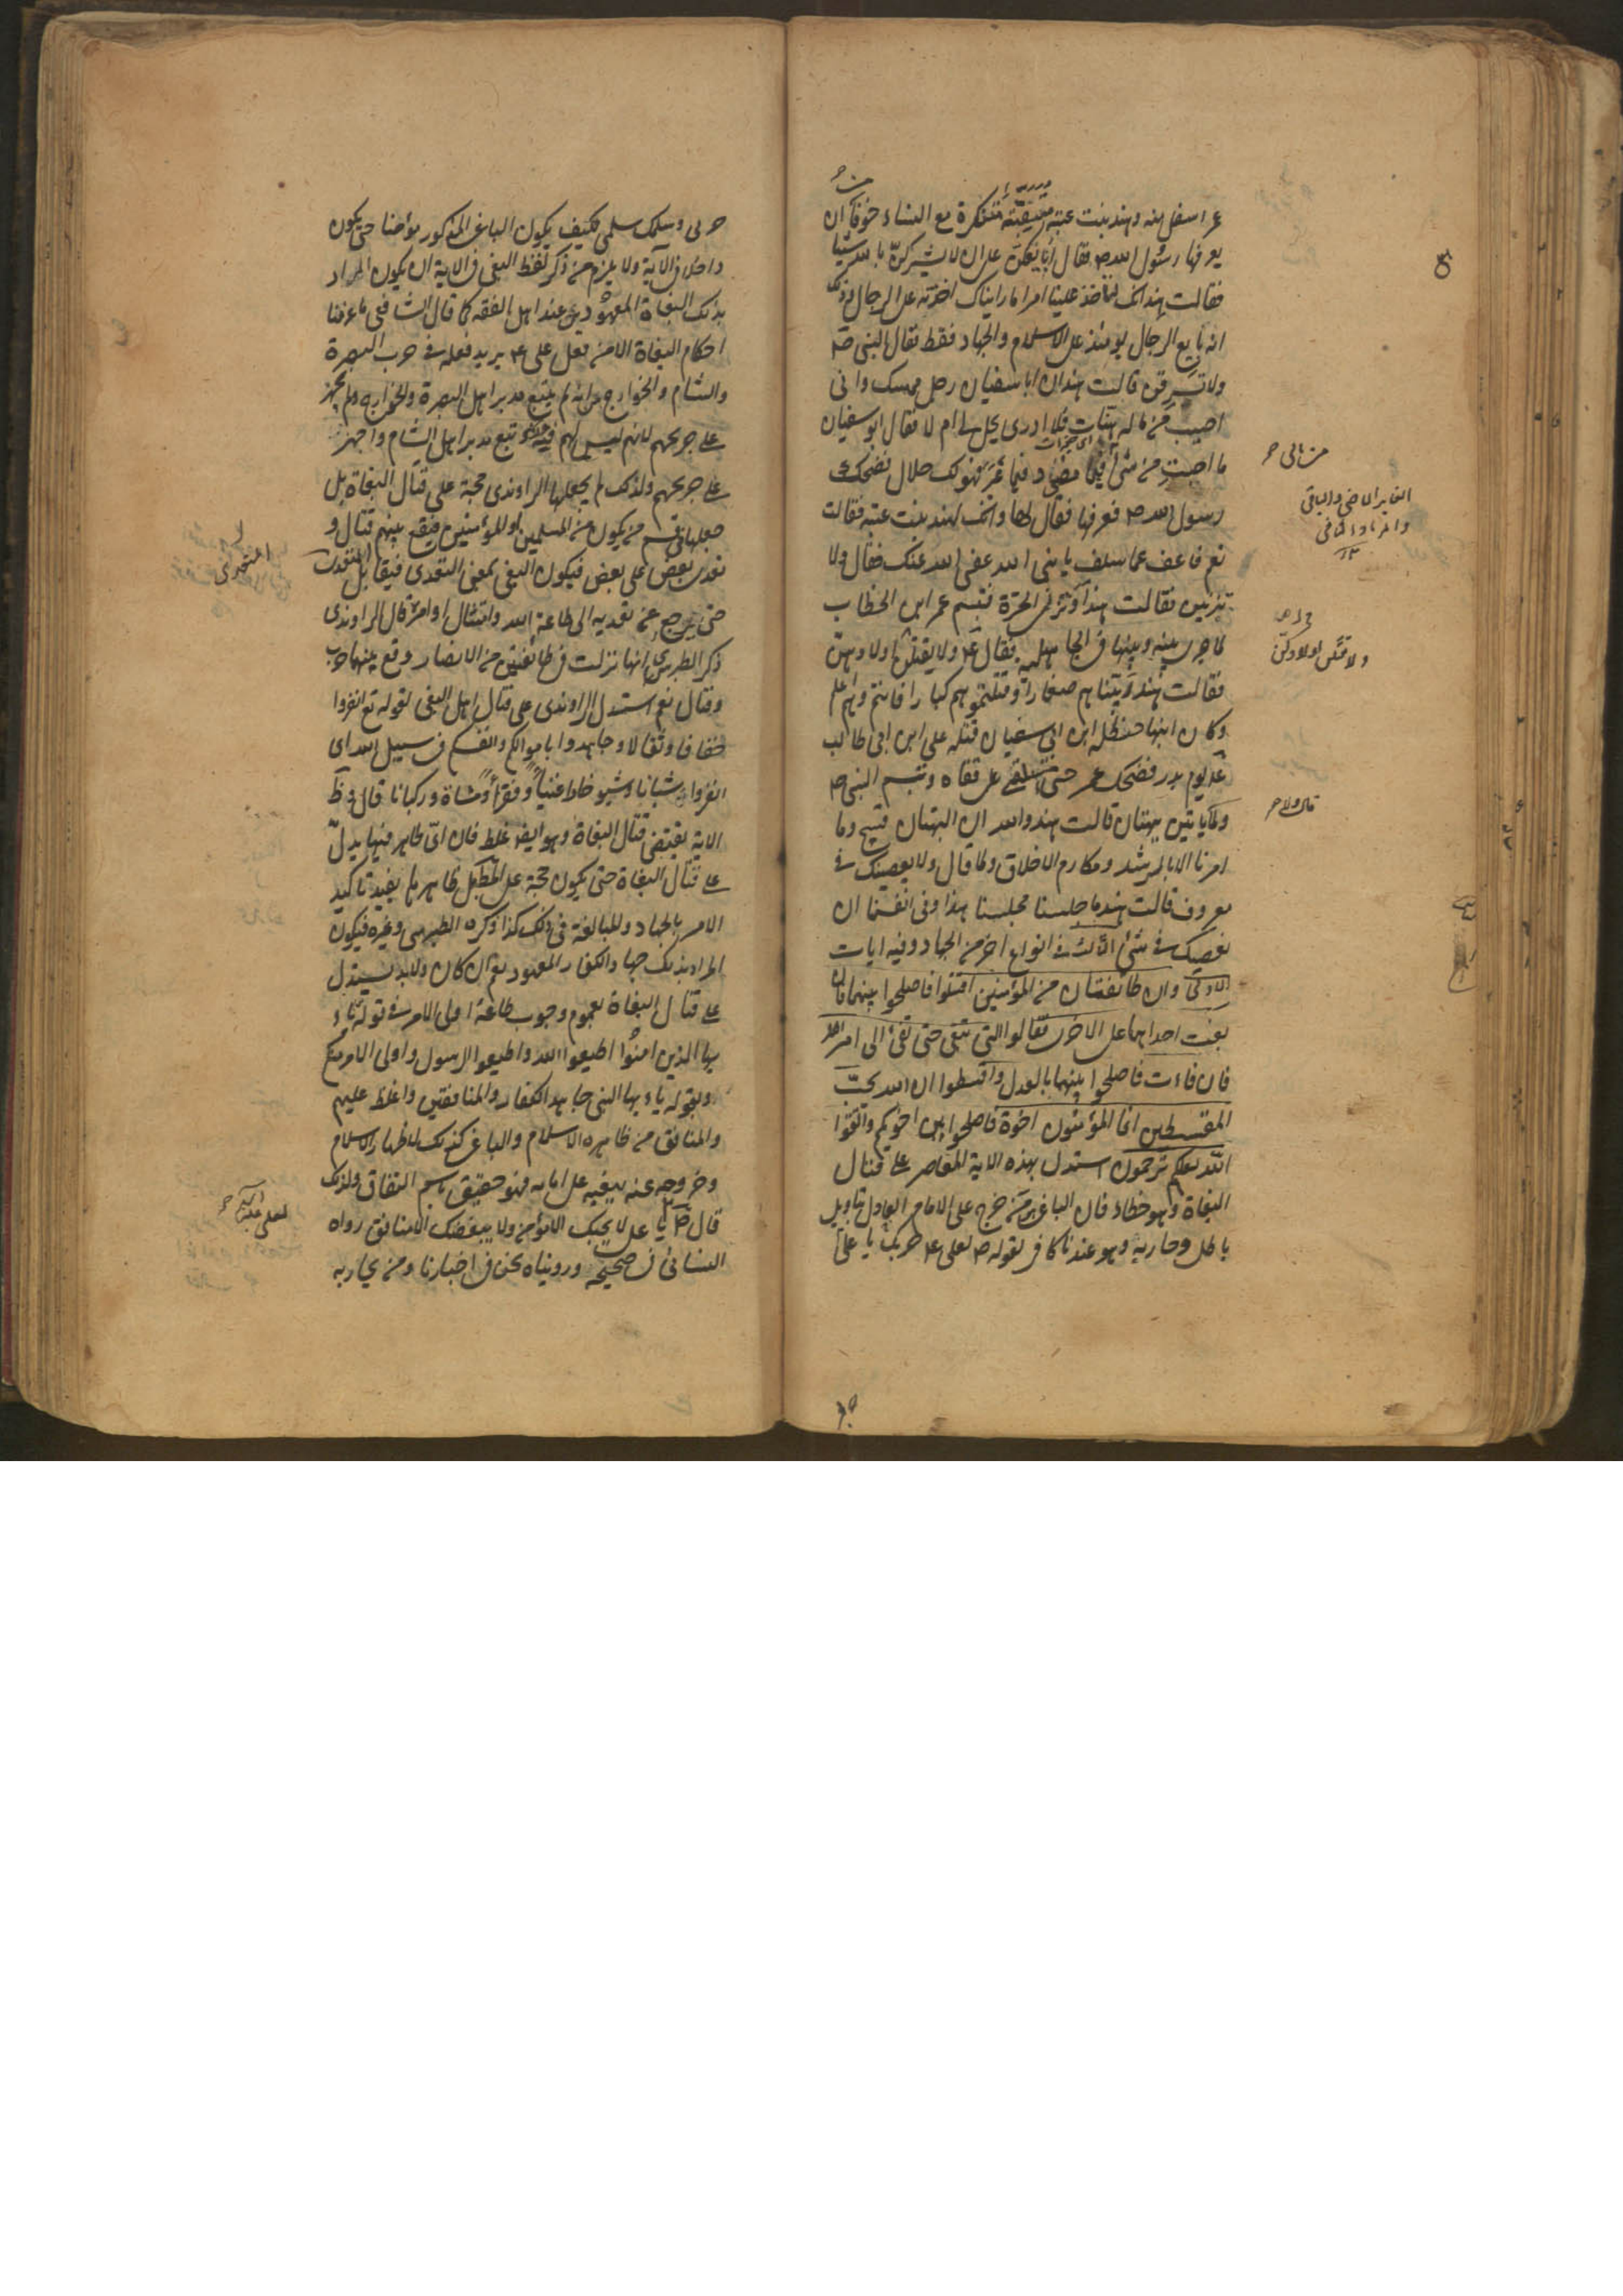 عمر اسفل منه وهند بنت عتبة متنقبة متنكرة مع النساء خوفا ان
يعرفها رسول الله ص فقال أبايعكن على ان لا تشركن بالله شيئا
فقالت هند انك لتأخذ علينا امرا ما رايناك اخذته على الرجال وذلك
انه بايع الرجال يومئذ على الاسلام والجهاد فقط فقال النبي ص
ولا تسرقن قالت هند ان ابا سفيان رجل ممسك واني
اصبت من ماله هنات فلا ادري يحل لي ام لا فقال ابو سفيان
ما اصبت من شئ فيما مضى وفيما غبر فهو لك حلال فضحك
رسول الله ص فعرفها فقال لها وانك لهند بنت عتبه فقالت
نعم فاعف عما سلف يا نبي الله عفى الله عنك فقال ولا
تزنين فقالت هند أو تزني الحرة فتبسم عمر ابن الخطاب
لما جرى بينه وبينها في الجاهلية فقال ع ولا يقتلن اولادهن
فقالت هند ربيناهم صغارا وقتلتموهم كبارا فانتم وهم اعلم
وكان ابنها حنظلة ابن ابي سفيان قتله علي ابن ابي طالب
ع يوم بدر فضحك عمر حتى استلقى على قفاه وتبسم النبي ص
ولما يأتين ببهتان قالت هند والله ان البهتان قبيح وما
امرنا الا بالرشد ومكارم الاخلاق ولما قال ولا يعصينك في
معروف قالت هند ما جلسنا مجلسنا هذا وفي انفسنا ان
نعصيك في شئ الثالث في انواع اخر من الجهاد وفيه ايات
الاولى وان طائفتان من المؤمنين اقتتلوا فاصلحوا بينهما فان
بغت احداهما على الاخرى فقاتلوا التي تبغى حتى تفئ الى امر الله
فان فاءت فاصلحوا بينهما بالعدل واقسطوا ان الله يحب
المقسطين انما المؤمنون اخوة فاصلحوا بين اخويكم واتقوا
الله لعلكم ترحمون استدل بهذه الاية المعاصر على قتال
البغاة وهو خطاء فان الباغى من خرج على الامام العادل بتاويل
باطل وحاربه وهو عندنا كافر لقوله ص لعلى ع حربك يا على
من مالى
الغابر الماضى والباقى
والمراد الباقى
ولا تقتلن اولادكن
قال ولا
حربى وسلمك سلمى فكيف يكون الباغى المذكور مؤمنا حتى يكون
داخلا في الآية ولا يلزم من ذكر لفظ البغى في الاية ان يكون المراد
بذلك البغاة المعهودين عند اهل الفقه كما قال الشافعى ما عرفنا
احكام البغاة الا من فعل على ع يريد فعله في حرب البصرة
والشام والخوارج من انه لم يتبع مدبر اهل البصرة والخوارج ولم يجهز
على جريحهم لانهم ليس لهم فئة وتبع مدبر اهل الشام واجهز
على جريحهم ولذلك لم يجعلها الراوندى حجة على قتال البغاة بل
جعلها في قسم من يكون من المسلمين او المؤمنين فيقع بينهم قتال و
تعدى بعض على بعض فيكون البغى بمعنى التعدى فيقاتل المتعدى
حتى يرجع عن تعديه الى طاعة الله وامتثال اوامره قال الراوندى
ذكر الطبرى انها نزلت في طائفتين من الانصار وقع بينهما حرب
وقتال نعم استدل الراوندى على قتال اهل البغى لقوله تع انفروا
خفافا وثقالا وجاهدوا باموالكم وانفسكم في سبيل الله اى
انفروا شبانا وشيوخا واغنياء وفقراء ومشاة وركبانا قال وظ
الاية يقتضى قتال البغاة وهو ايضا غلط فان اى ظاهر فيها يدل
على قتال البغاة حتى يكون حجة على المط بل ظاهرها يفيد تاكيد
الامر بالجهاد والمبالغة في ذلك كذا ذكره الطبرسى وغيره فيكون
المراد بذلك جهاد الكفار المعهود نعم ان كان ولابد يستدل
على قتال البغاة بعموم وجوب طاعة اولى الامر في قوله تع يا
يها الذين امنوا اطيعوا الله واطيعوا الرسول واولى الامر منكم
وبقوله يا ايها النبى جاهد الكفار والمنافقين واغلظ عليهم
والمنافق من ظاهره الاسلام والباغى كذلك لاظهاره الاسلام
وخروجه عنه ببغيه على امامه فهو حقيق باسم النفاق ولذلك
قال ص يا على لا يحبك الا مؤمن ولا يبغضك الا منافق رواه
النسائى في صحيحه ورويناه نحن في اخبارنا ومن يحاربه
المتعدى
لعلى